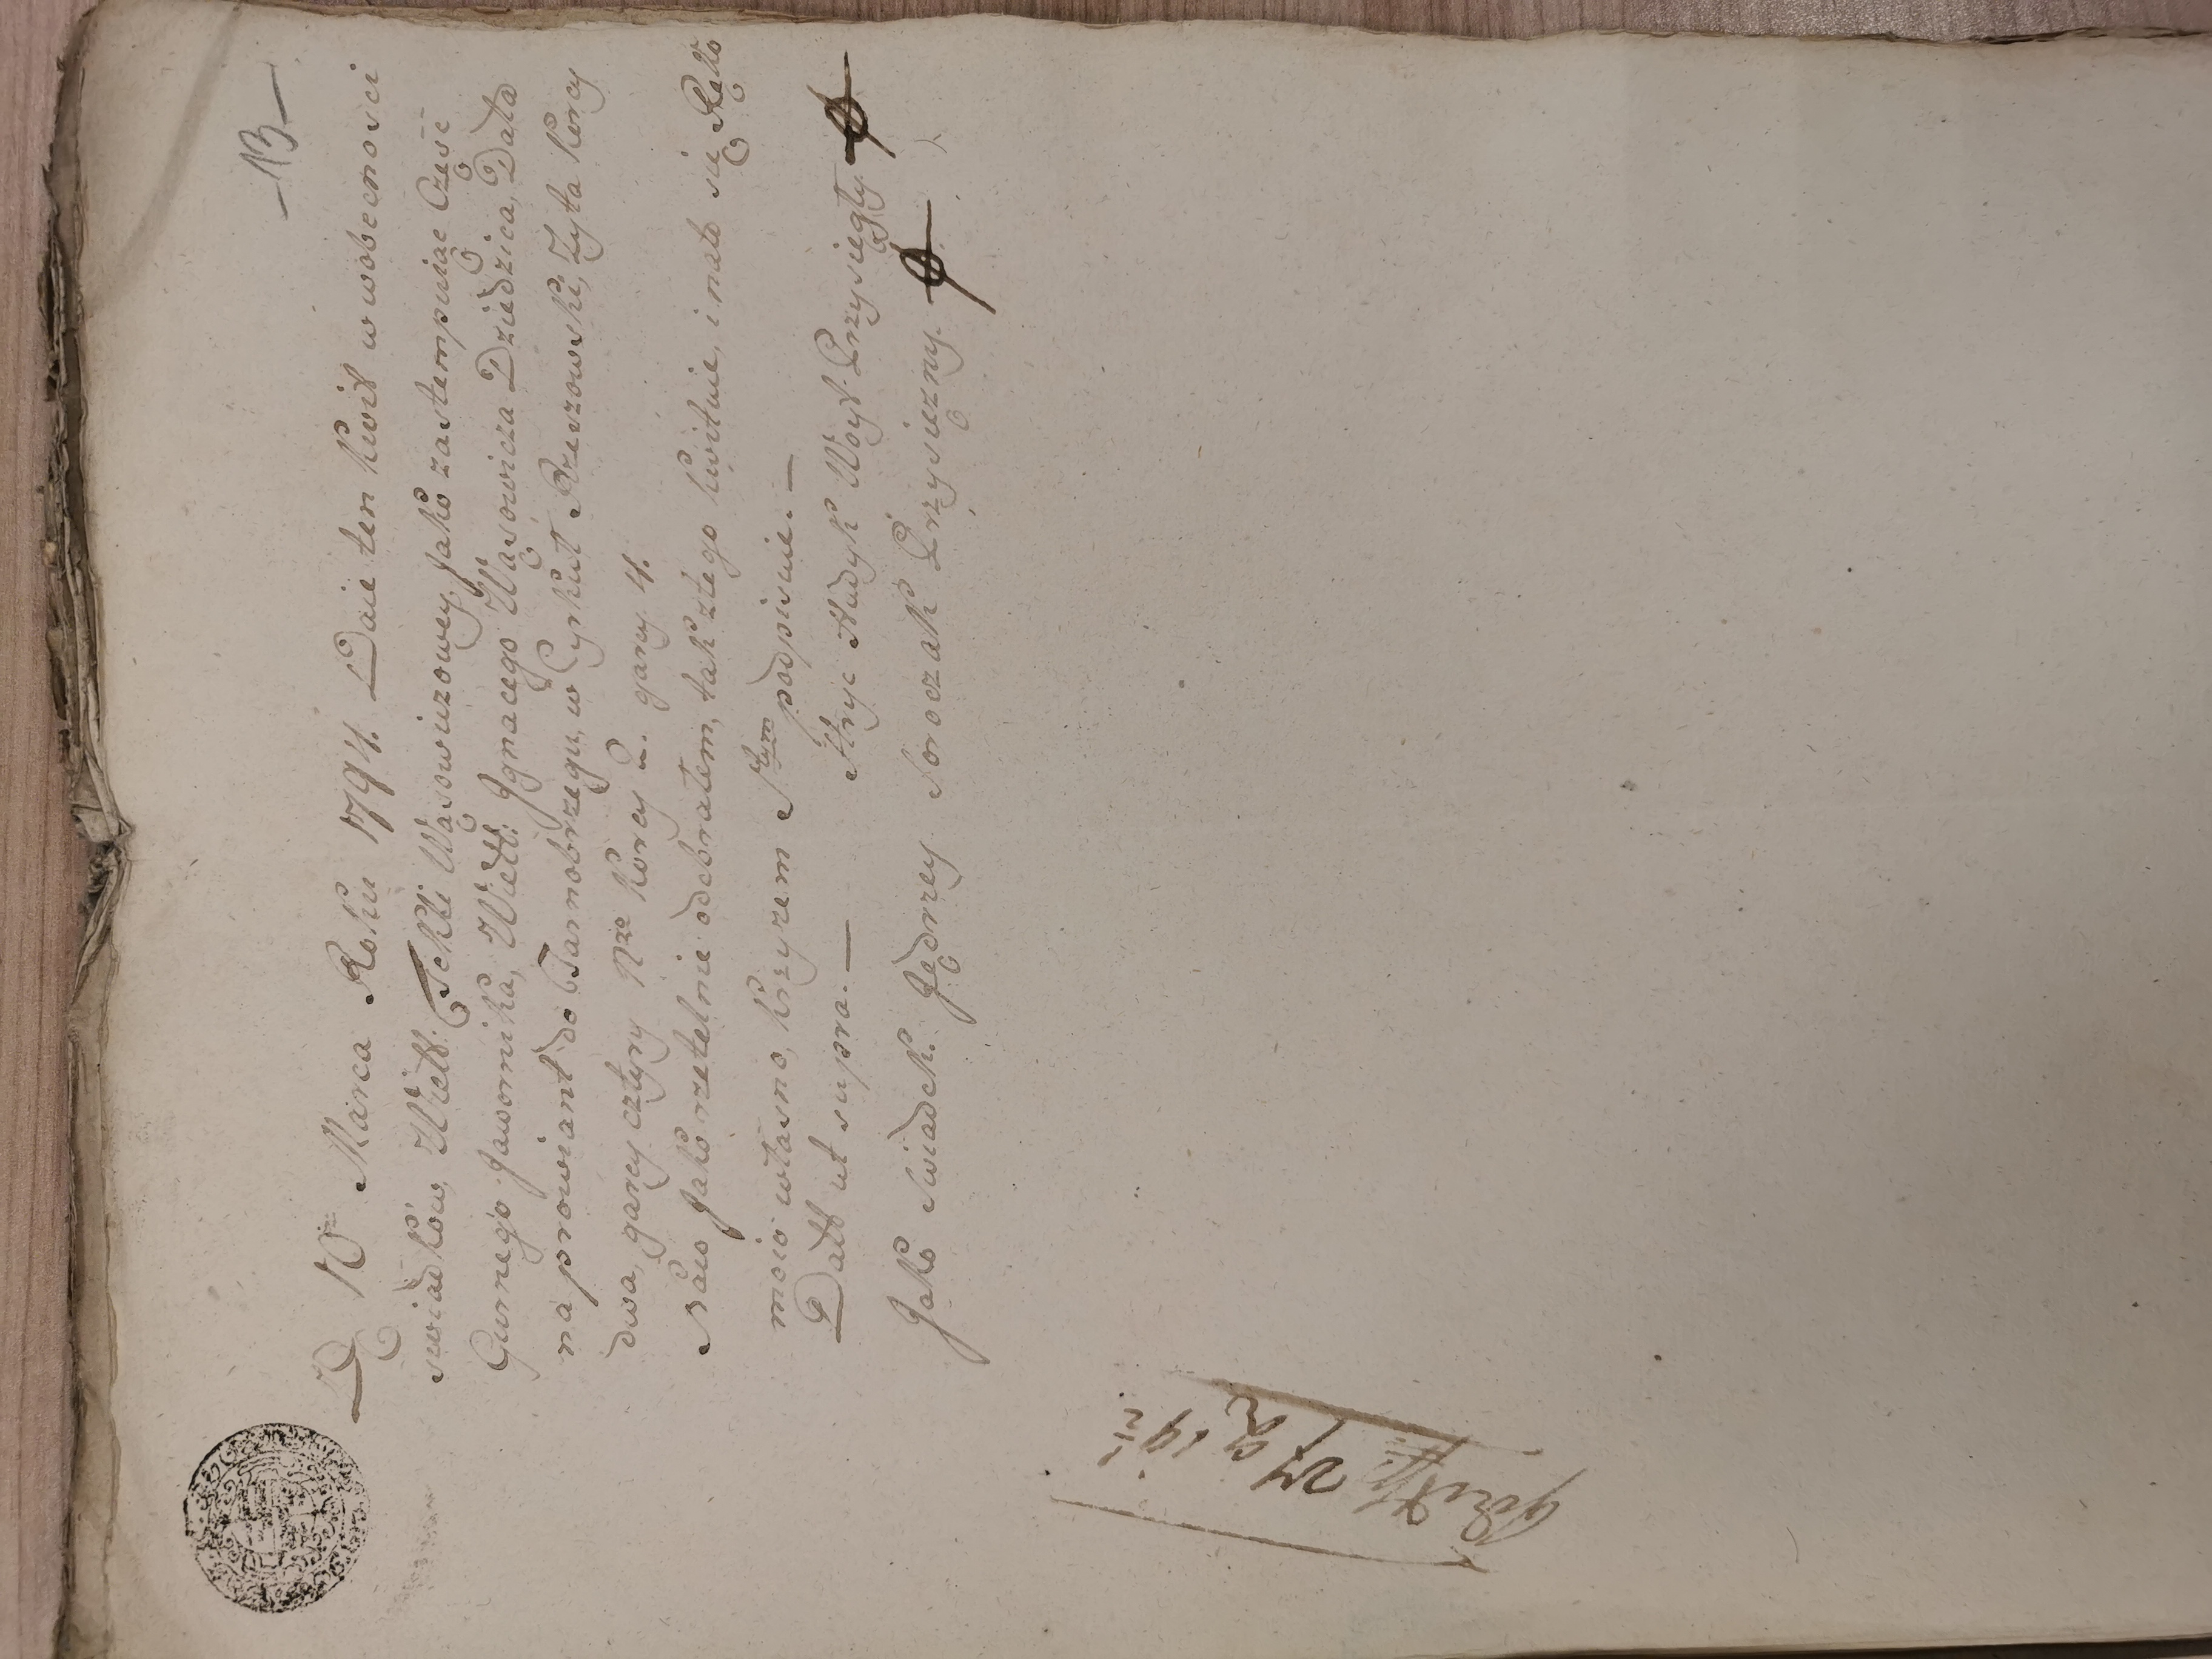 -13-
D. 10 Marca Roku 1794. Daie ten kwit w wobecnosci
swiadków, Wiel: Tekli Wąsowiczowey, Jako zastempuiąc Część
Gurnego Jawornika, Wiel: Ignacego Wąsowicza Dziedzica, Data
na prowiant do Tarnobrzegu, w Cyrkuł Rzeszowski, Zyta korcy
dwa, garcy cztyry Nro korcy 2. garcy 4.
Jako rzetelnie odebrałem, tak ztego kwituie, i nato się Ręko
mcio własno, krzyzem Stym podpisuie.—
Datt ut supra.— Hryc Hudyk Woyt Przysięgły
Jako Swiadek Jędrzey Soroczak Przysiezny.